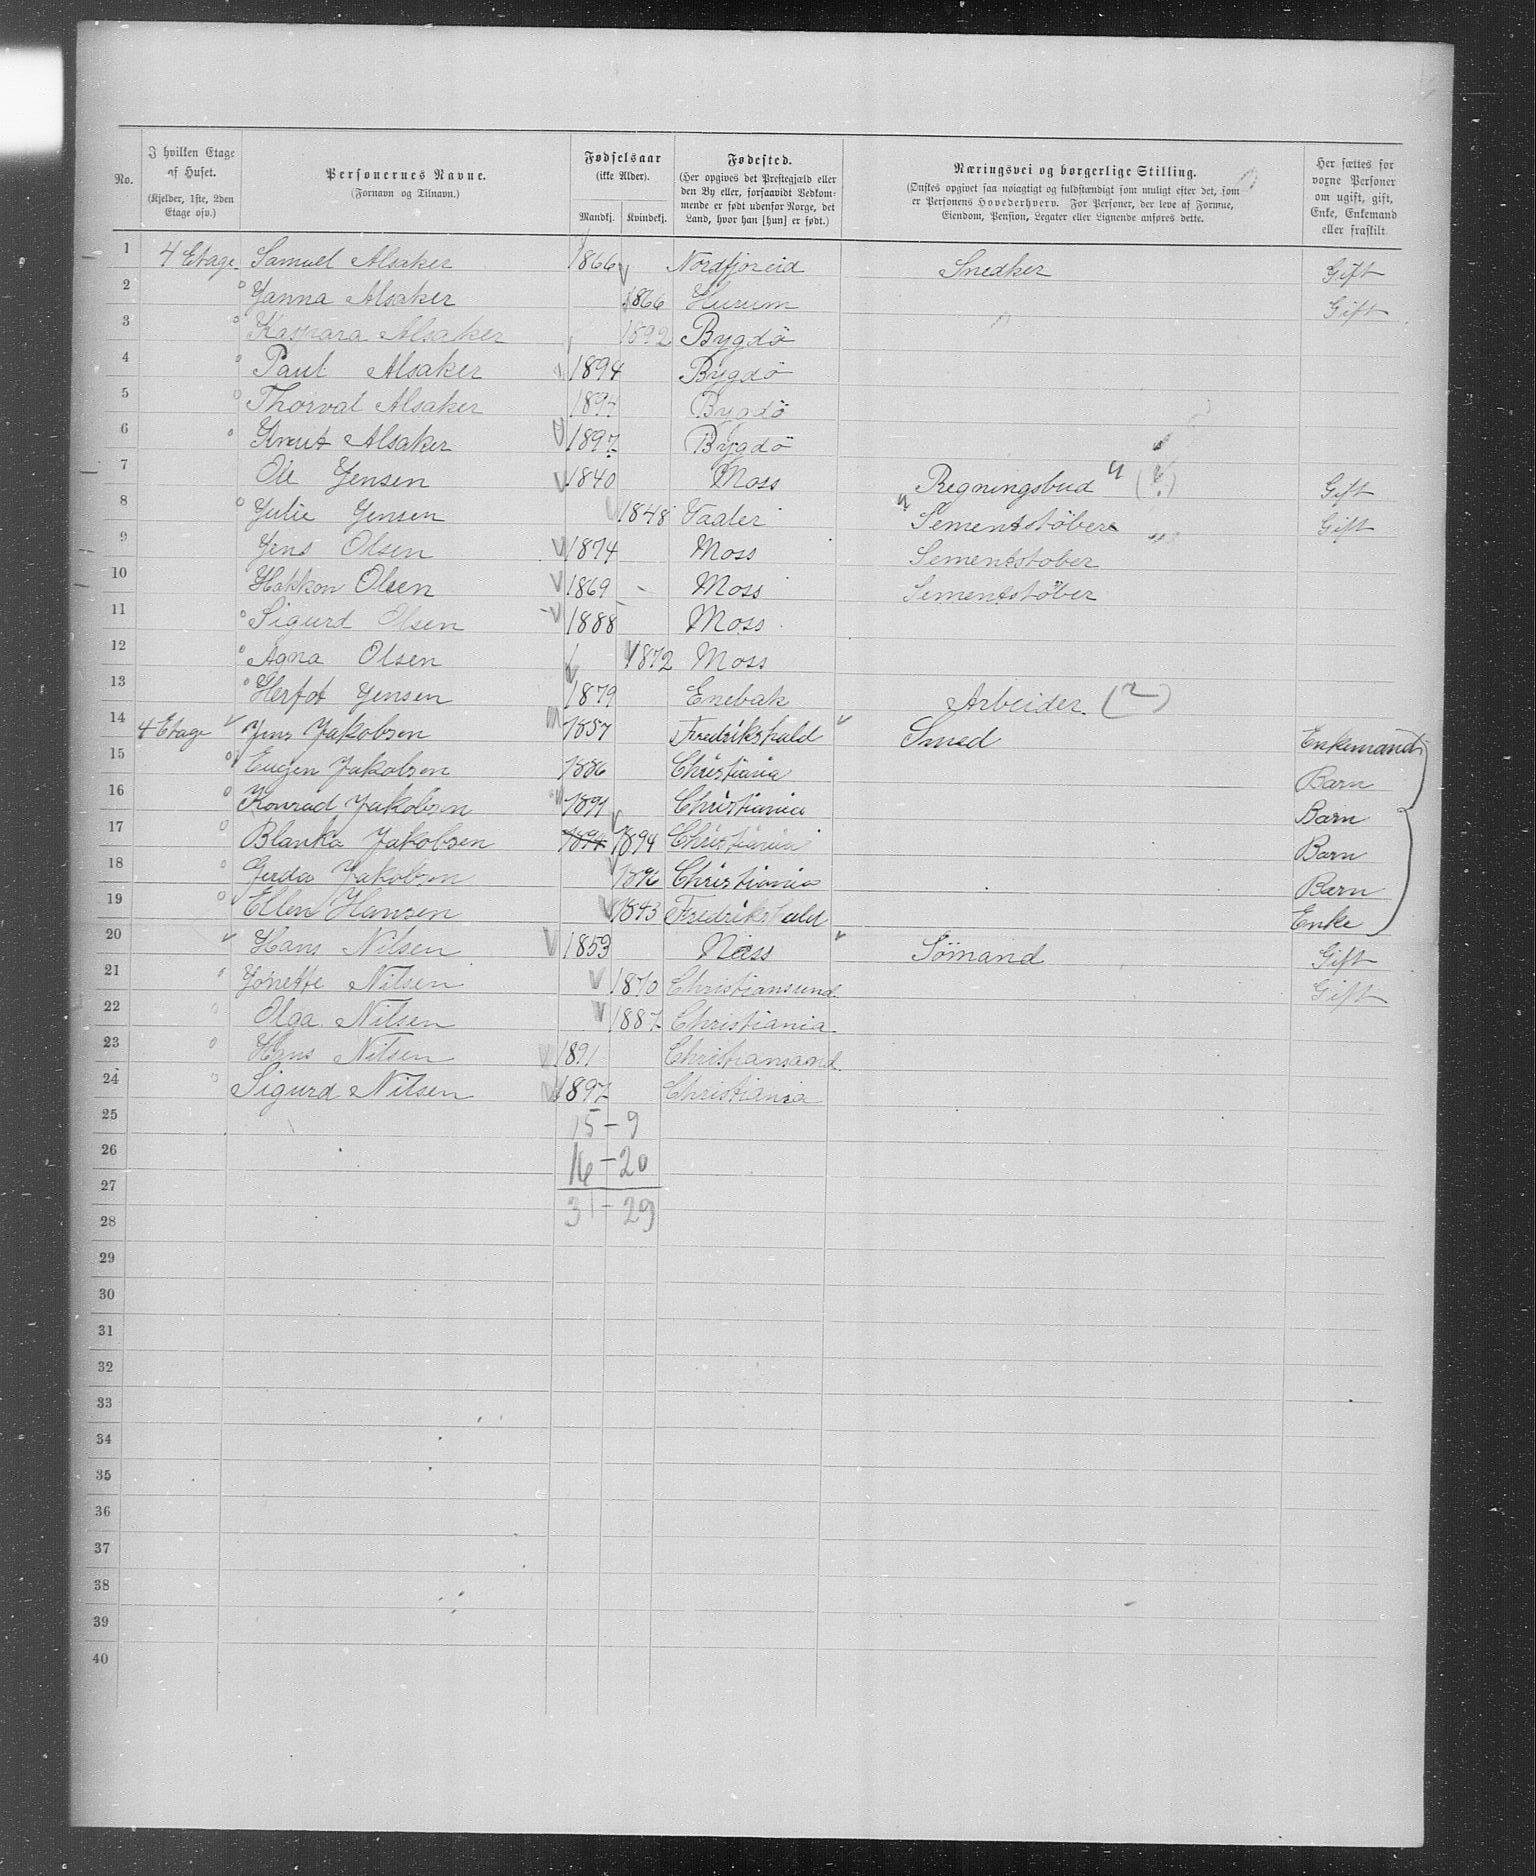 No.
I hvilken Etage af Huset. (Kjelder, 1ste, 2den Etage osv.)
Personernes Navne. (Fornavn og Tilnavn.)
Fødselsaar (ikke Alder). Mandkj. Kvindekj.
Fødested. (Her opgives det Prestegjæld eller den By eller, forsaavidt Vedkommende er født udenfor Norge, det Land, hvor han [hun] er født.)
Næringsvei og borgerlige Stilling. (Ønskes opgivet saa nøiagtigt og fuldstændigt som muligt efter det, som er Personens Hovederhverv. For Personer, der leve af Formue, Eiendom, Pension, Legater eller Lignende anføres dette.
Her sættes for voxne Personer om ugift, gift, Enke, Enkemand eller fraskilt.
1 4 Etage Samuel Alsaker 1866 Nordfjoreid Snedker Gift
2 Janna Alsaker 1866 Hurum Gift
3 Kaspara Alsaker 1892 Bygdö
4 Paul Alsaker 1894 Bygdö
5 Thorval Alsaker 1894 Bygdö
6 Knut Alsaker 1897 Bygdö
7 Ole Jensen 1840 Moss Regningsbud Gift
8 Julie Jensen 1848 Vaaler Sementstöber Gift
9 Jens Olsen 1874 Moss Sementstober
10 Hakkon Olsen 1869 Moss Sementstöber
11 Sigurd Olsen 1888 Moss
12 Agna Olsen 1872 Moss
13 Herfot Jensen 1879 Enebak Arbeider (2)
14 4 Etage Jens Jakobsen 1857 Fredrikshald Smed Enkemand
15 Eugen Jakobsen 1886 Christiania Barn
16 Konrad Jakobsen 1891 Christiania Barn
17 Blanka Jakobsen 1894 1894 Christiania Barn
18 Gerda Jakobsen 1896 Christiania Barn
19 Ellen Hansen 1843 Fredrikshald Enke
20 Hans Nilsen 1853 Næss Sömand Gift
21 Jonette Nilsen 1870 Christiansund Gift
22 Olga Nilsen 1887 Christiania
23 Hans Nilsen 1891 Christiansand
24 Sigurd Nilsen 1897 Christiania
25 15 - 9
26 16 - 20
27
28 31 - 29
29
30
31
32
33
34
35
36
37
38
39
40